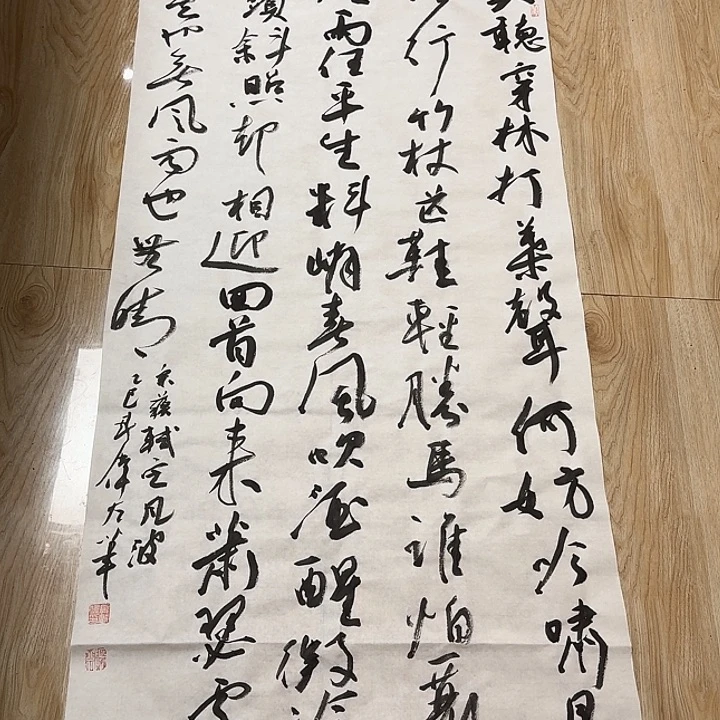 聽穿林打葉聲何妨吟嘯且
行竹杖芒鞋輕勝馬誰怕一蓑
雨任平生料峭春風吹酒醒微冷
頭斜照却相迎回首向來蕭瑟處
去也無風雨也無晴
宋蘇軾定風波
乙巳年偉左筆